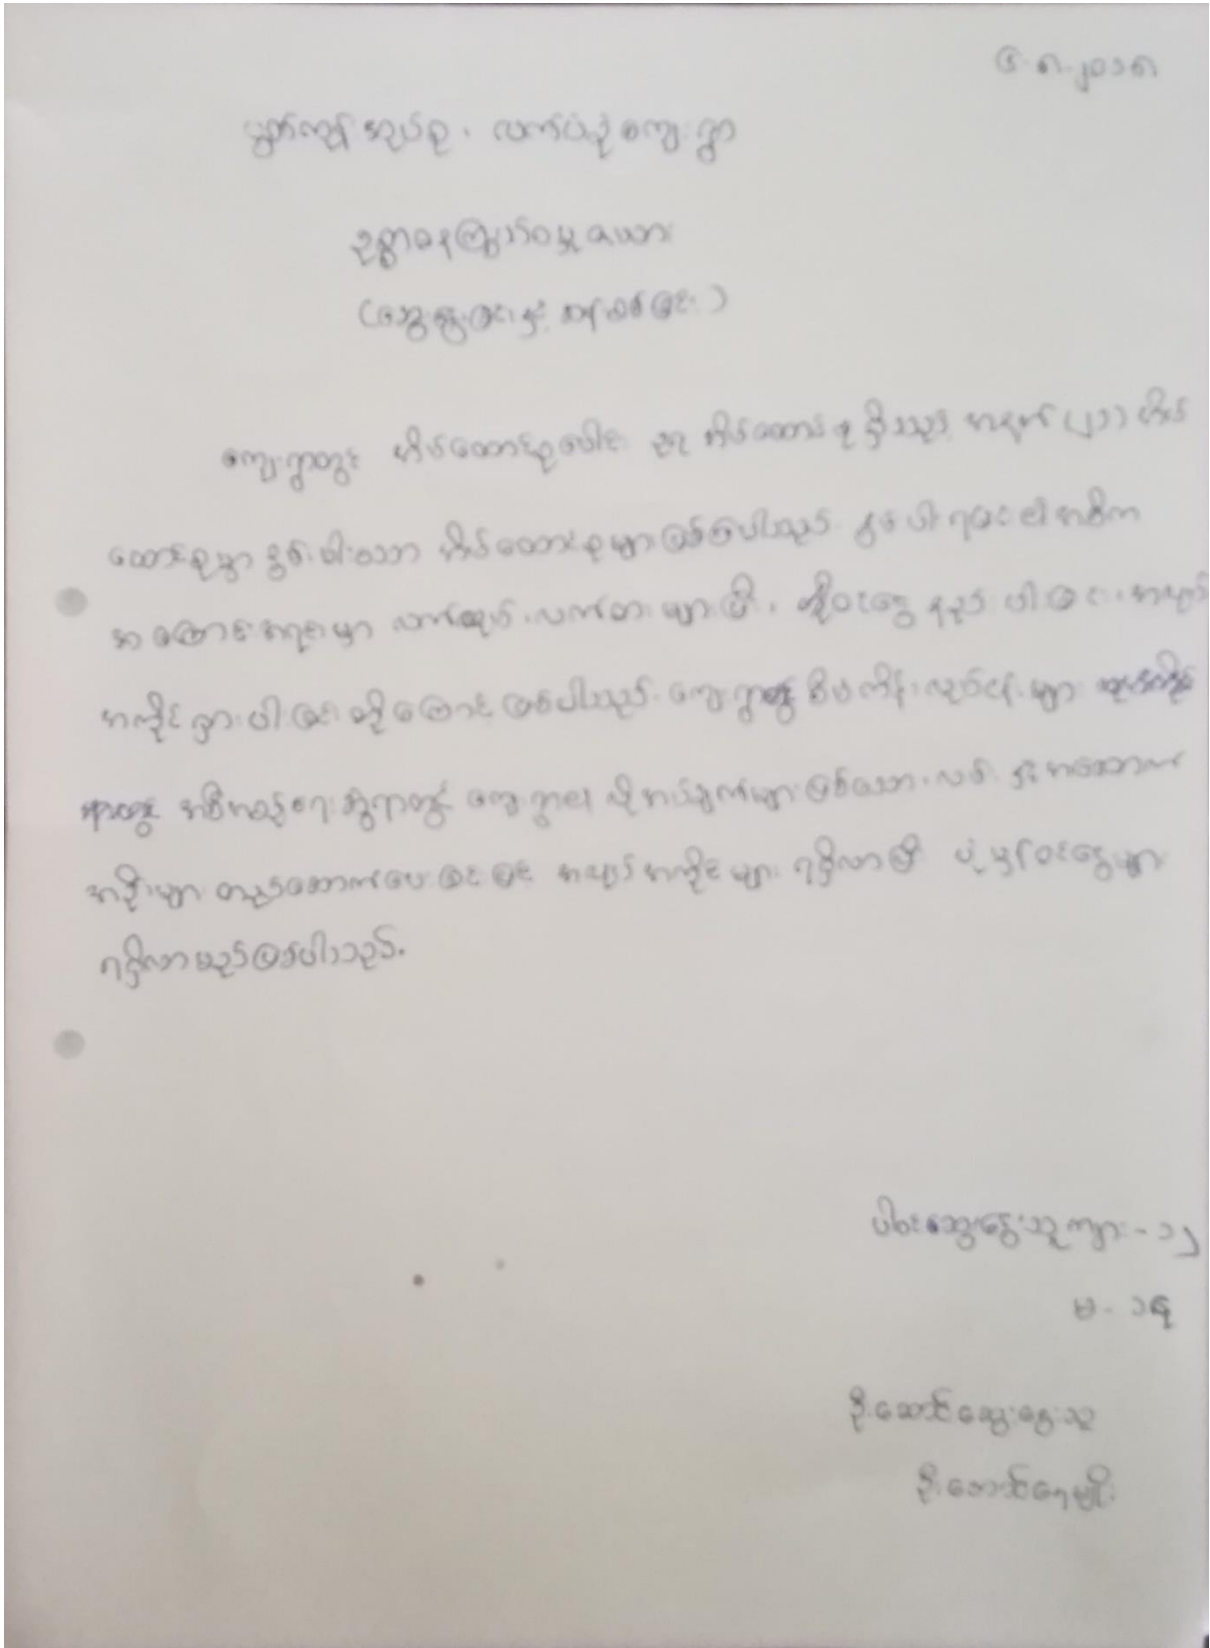 ၆.၈.၂၀၁၈
ပွတ်ကျွန်းအုပ်စု၊ လက်ပံပုံကျေးရွာ
ဥစ္စာဓနကြွယ်ဝမှုဇယား
(ဆွေးနွေးခြင်းနှင့် အမှတ်ပေးခြင်း)
ကျေးရွာတွင် အိမ်ထောင်စုပေါင်း အိမ်ထောင်စု ရှိသည့် အနက် (၂၁) အိမ်
ထောင်စုမှာ နွမ်းပါးသော အိမ်ထောင်စုများဖြစ်ပါသည်။ နွမ်းပါးရခြင်း၏ အဓိက
အကြောင်းအရင်းမှာ လက်လုပ်၊ လက်စား များပြီး၊ ဝင်ငွေ နည်းပါးခြင်း၊ အလုပ်
အကိုင် ရှားပါးခြင်း တို့ကြောင့် ဖြစ်ပါသည်။ ကျေးရွာတွင် စီမံကိန်း လုပ်ငန်းများ
အကောင်အထည် ကျေးရွာ၏ လိုအပ်ချက်များဖြစ်သော၊ လမ်း နှင့် အဆောက်
အဦးများ တည်ဆောက်ပေးခြင်းဖြင့် အလုပ်အကိုင်များ ရရှိလာပြီး ပုံမှန်ဝင်ငွေများ
ရရှိလာမည်ဖြစ်ပါသည်။
ပါဝင်ဆွေးနွေးသူ ကျား - ၁၂
မ - ၁၄
ဦးဆောင်ဆွေးနွေးသူ
ဦးအောင်နေမျိုး